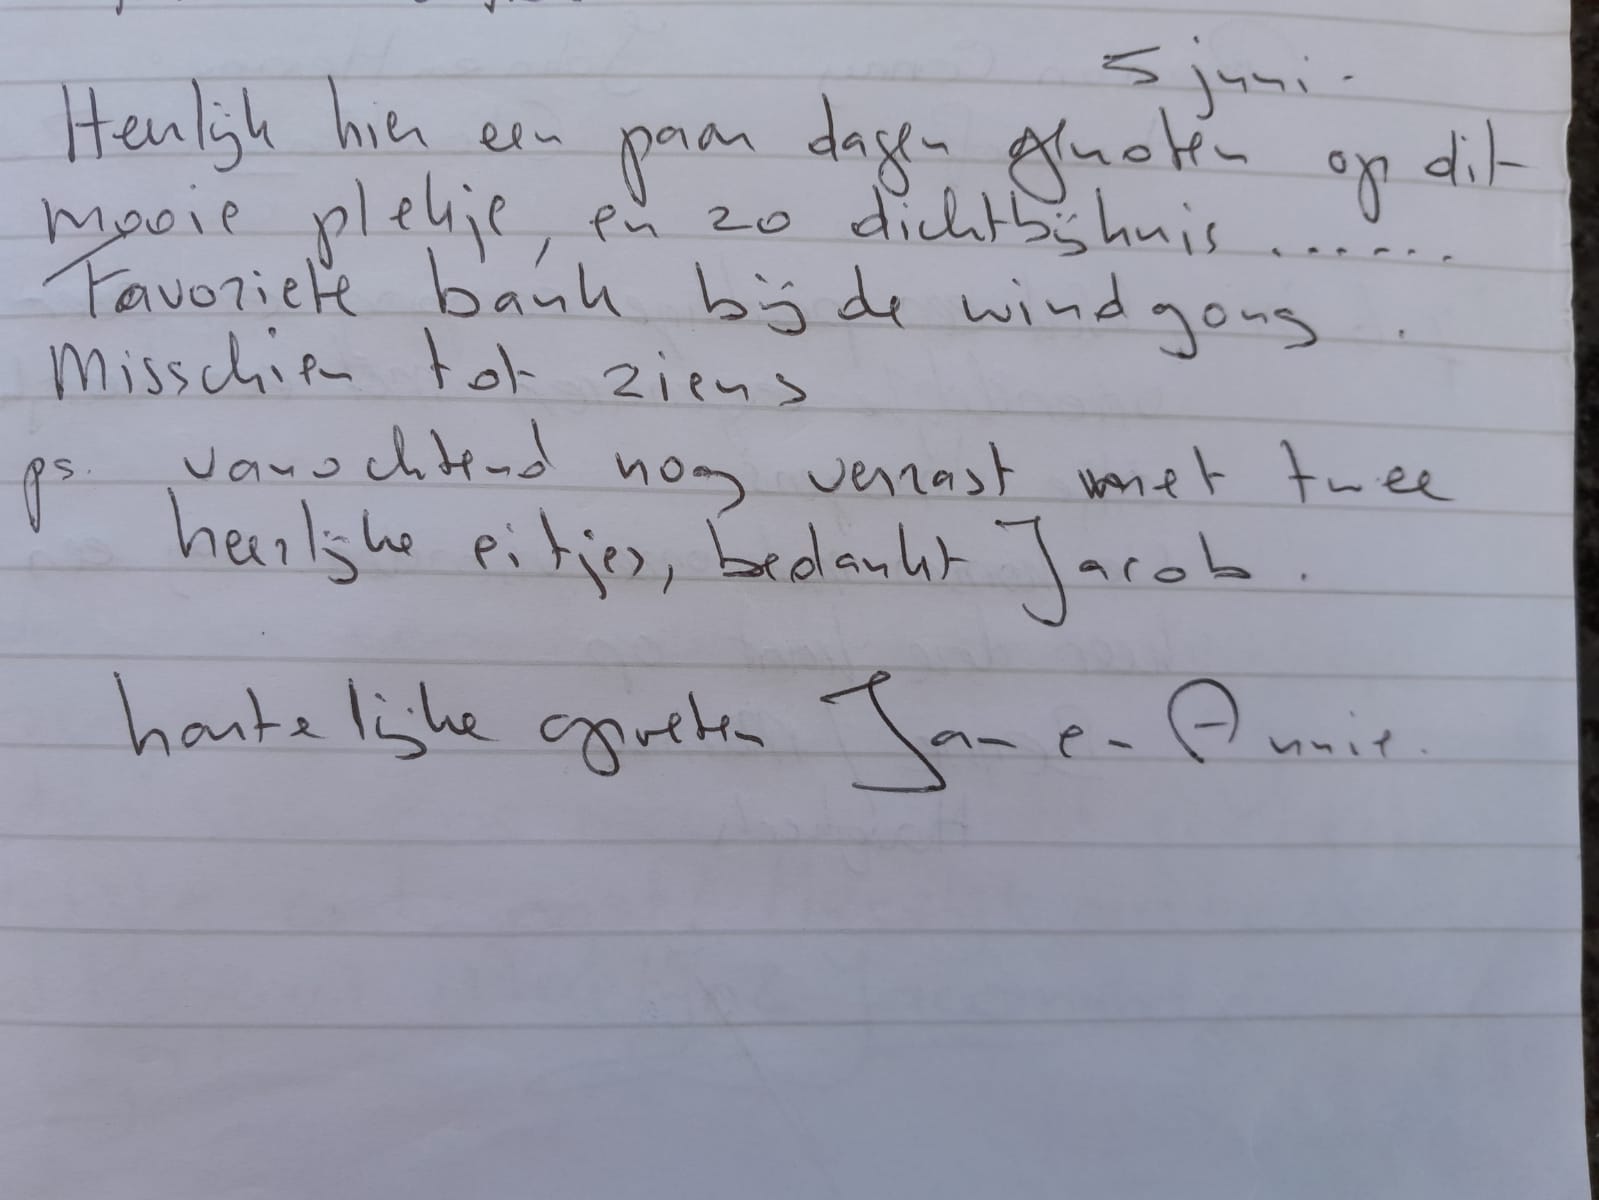 5 juni.
Heerlijk hier een paar dagen genoten op dit
mooie plekje, en zo dichtbijhuis .......
Favoriete bank bij de windgong.
Misschien tot ziens
ps. vanochtend nog verrast met twee
heerlijke eitjes, bedankt Jacob.
hartelijke groeten Jan en Annie.